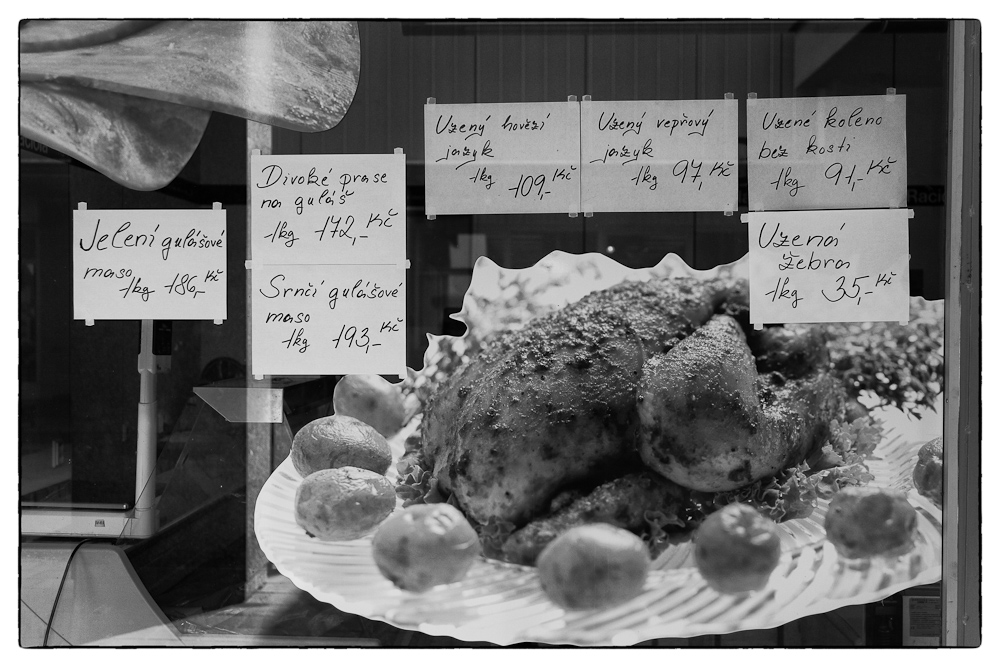 Jelení gulášové
maso
1kg 186,- Kč
Divoké prase
na guláš
1kg 172,- Kč
Srnčí gulášové
maso
1kg 193,- Kč
Uzený hovězí
jazyk
1kg 109,- Kč
Uzený vepřový
jazyk
1kg 97,- Kč
Uzené koleno
bez kosti
1kg 91,- Kč
Uzená
žebra
1kg 35,- Kč